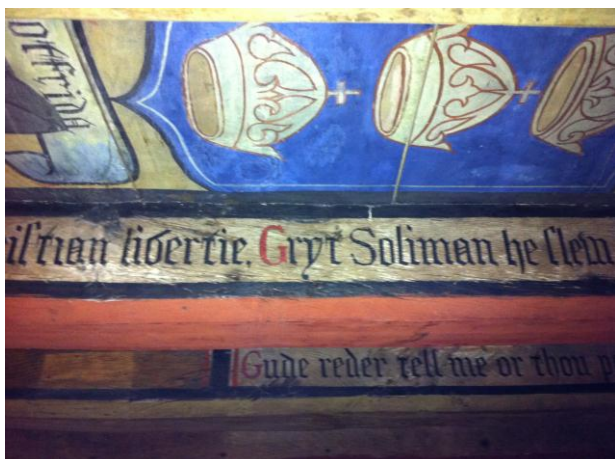 iſtian libertie. Gryt Soliman he ſlew
Gude reder tell me or thou p